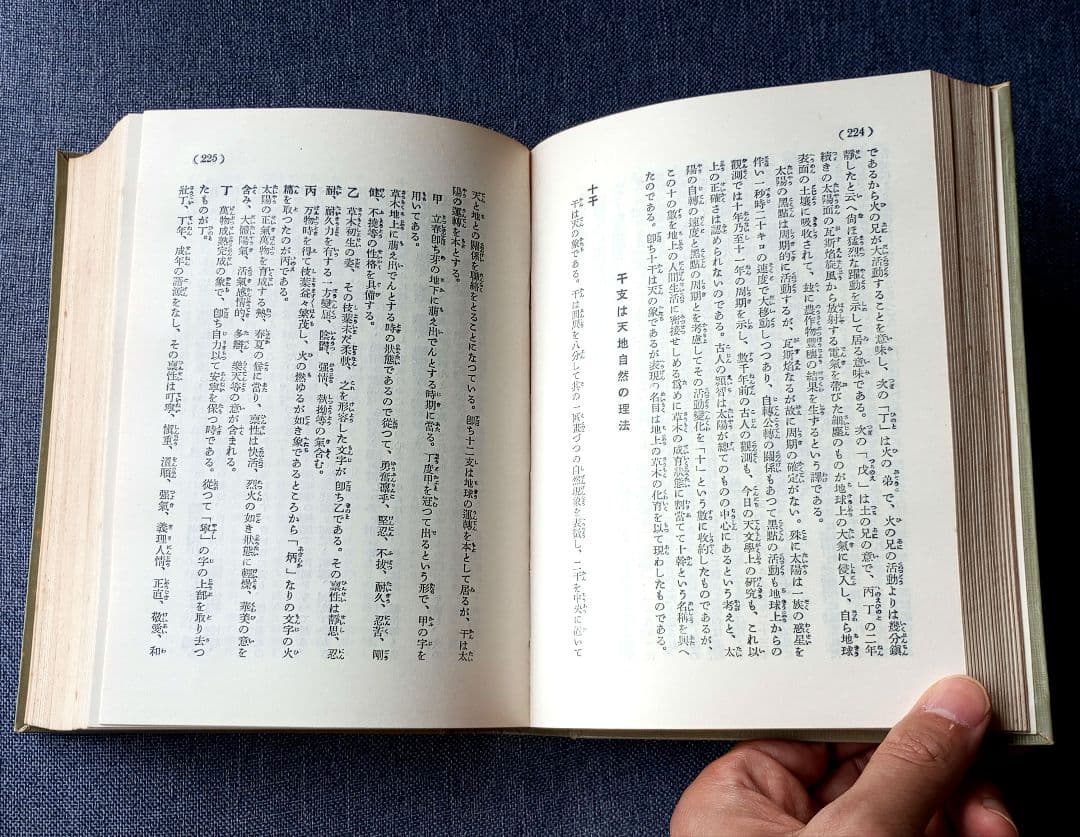 (224)
であるから火の兄が大活動することを意味し、次の「丁」は火の弟で、火の兄の活動よりは幾分鎮
靜したと云へ尙ほ猛烈な躍動を示して居る意味である。次の「戊」は土の兄の意で、丙丁の二年
續きの太陽面の瓦斯焰旋風から放射する電氣を帶びた細塵のものが地球上の大氣に侵入し、自ら地球
表面の土壤に吸收されて、玆に農作物豐穰の結果を生ずるという譯である。
太陽の黑點は周期的に活動するが、瓦斯焰なるが故に周期の確定がない。殊に太陽は一族の惑星を
伴い一秒時二十キロの速度で大移動しつつあり、自轉公轉の關係もあつて黑點の活動も地球上からの
觀測では十年乃至十一年の周期を示し、數千年前の古人の觀測も、今日の天文學上の硏究も、これ以
上の正確さは認められないのである。古人の顯智は太陽が總てのものの中心にあるという考えと、太
陽の自轉の速度と黑點の周期とを考慮してその活動變化を「十」という數に收約したものであるが、
この十の數を地上の人間生活に密接せしめる爲めに草木の成育狀態に割當てて十幹という名稱を與へ
たのである。卽ち十干は天の象であるが表現の名目は地上の草木の化育を以て現わしたものである。
干支は天地自然の理法
十干
干は天の象である。干は四周を八分して其の一區劃づつの自然現象を表徵し、二干を中央に置いて
(225)
天と地との關係を聯絡をとることになつている。卽ち十二支は地球の運轉を本として居るが、干は太
陽の運轉を本とする。
甲 立春卽ち芽の地下に萠え出でんとする時期に當る。丁度甲を冠つて出るという形で、甲の字を
用いてある。
草木地上に萠え出でんとする時の狀態であるので從つて、勇奮凛乎、堅忍、不拔、耐久、忍苦、剛
健、不撓等の性格を具備する。
乙 草木初生の姿、その枝葉未だ柔軟、之を形容した文字が卽ち乙である。その稟性は靜思、忍
耐、耐久力を有する一方變屈、陰鬱、强情、執拗等の氣を含む。
丙 万物時を得て枝葉益々繁茂し、火の燃ゆるが如き象であるところから「炳」なりの文字の火
篇を取つたのが丙である。
太陽の正氣萬物を育成する熱、春夏の督に當り、稟性は快活、烈火の如き狀態に輕燥、華美の意を
含み、大體陽氣、活氣感情的、多辯、樂天等の意が含まれる。
丁 萬物成熟完成の象で、卽ち自力以て安寧を保つ時である。從つて「寧」の字の上部を取り去つ
たものが丁。
壯丁、丁年、成年の語源をなし、その稟性は叮寧、愼重、溫順、强氣、義理人情、正直、敬愛、和